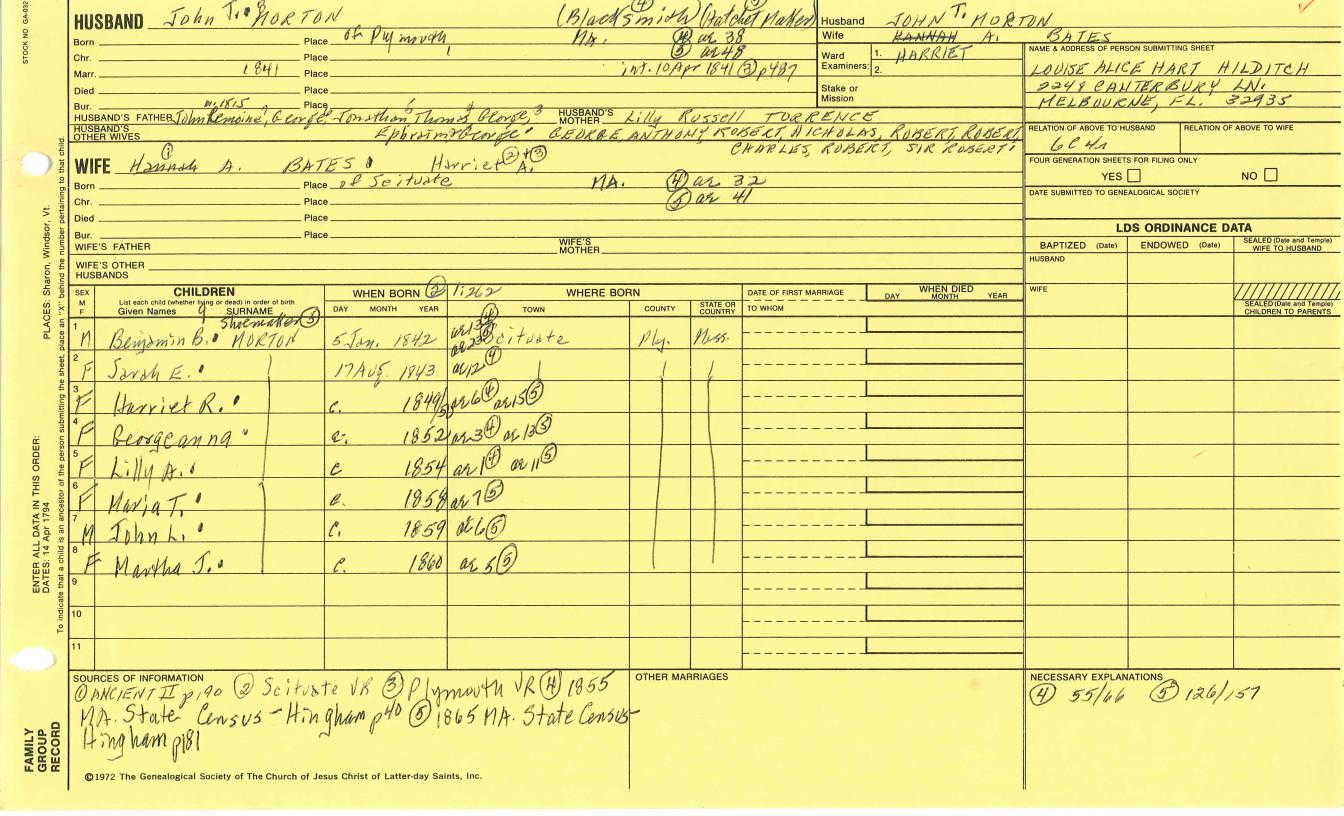 STOCK NO. GA-032
HUSBAND John T. MORTON (Blacksmith) (Hatchet Maker)
Born Place of Plymouth, MA. ④ ae 38
Chr. Place ⑤ ae 48
Marr. 1841 Place int. 10 Apr 1841 ③ p487
Died Place
Bur. Place
m. 1815
HUSBAND'S FATHER John, George, Jonathan, Thomas, George, HUSBAND'S MOTHER Lilly Russell TORRENCE
HUSBAND'S OTHER WIVES Ephraim, George GEORGE, ANTHONY, ROBERT, NICHOLAS, ROBERT, ROBERT,
CHARLES, ROBERT, SIR ROBERT
Husband JOHN T. MORTON
Wife HANNAH A. BATES
Ward Examiners: 1. HARRIET
2.
Stake or Mission
NAME & ADDRESS OF PERSON SUBMITTING SHEET
LOUISE ALICE HART HILDITCH
2248 CANTERBURY LN.
MELBOURNE, FL. 32935
RELATION OF ABOVE TO HUSBAND RELATION OF ABOVE TO WIFE
6C4R
FOUR GENERATION SHEETS FOR FILING ONLY
YES NO
DATE SUBMITTED TO GENEALOGICAL SOCIETY
WIFE ① Hannah A. BATES Harriet ②+③ A.
Born Place of Scituate MA. ④ ae 32
Chr. Place ⑤ ae 41
Died Place
Bur. Place
WIFE'S FATHER WIFE'S MOTHER
WIFE'S OTHER HUSBANDS
LDS ORDINANCE DATA
BAPTIZED (Date) ENDOWED (Date) SEALED (Date and Temple) WIFE TO HUSBAND
HUSBAND
WIFE
SEALED (Date and Temple) CHILDREN TO PARENTS
SEX M F CHILDREN List each child (whether living or dead) in order of birth Given Names SURNAME
WHEN BORN ② 1:262 DAY MONTH YEAR
WHERE BORN TOWN COUNTY STATE OR COUNTRY
DATE OF FIRST MARRIAGE TO WHOM
WHEN DIED DAY MONTH YEAR
Shoemaker ⑤
1 M Benjamin B. MORTON 5 Jan. 1842 ae 13 ④ ae 23 ⑤ Scituate Ply. Mass.
2 F Sarah E. 17 Aug. 1843 ae 12 ④
3 F Harriet R. c. 1849/50 ae 6 ④ ae 15 ⑤
4 F Georgeanna c. 1852 ae 3 ④ ae 13 ⑤
5 F Lilly A. c 1854 ae 1 ④ ae 11 ⑤
6 F Maria T. c. 1858 ae 7 ⑤
7 M John L. c. 1859 ae 6 ⑤
8 F Martha J. c. 1860 ae 5 ⑤
9
10
11
SOURCES OF INFORMATION
① ANCIENT II p190 ② Scituate VR ③ Plymouth VR ④ 1855
MA. State Census - Hingham p40 ⑤ 1865 MA. State Census -
Hingham p181
OTHER MARRIAGES
NECESSARY EXPLANATIONS
④ 55/66 ⑤ 126/157
©1972 The Genealogical Society of The Church of Jesus Christ of Latter-day Saints, Inc.
FAMILY GROUP RECORD
ENTER ALL DATA IN THIS ORDER:
DATES: 14 Apr 1794
PLACES: Sharon, Windsor, Vt.
To indicate that a child is an ancestor of the person submitting the sheet, place an "X" behind the number pertaining to that child.